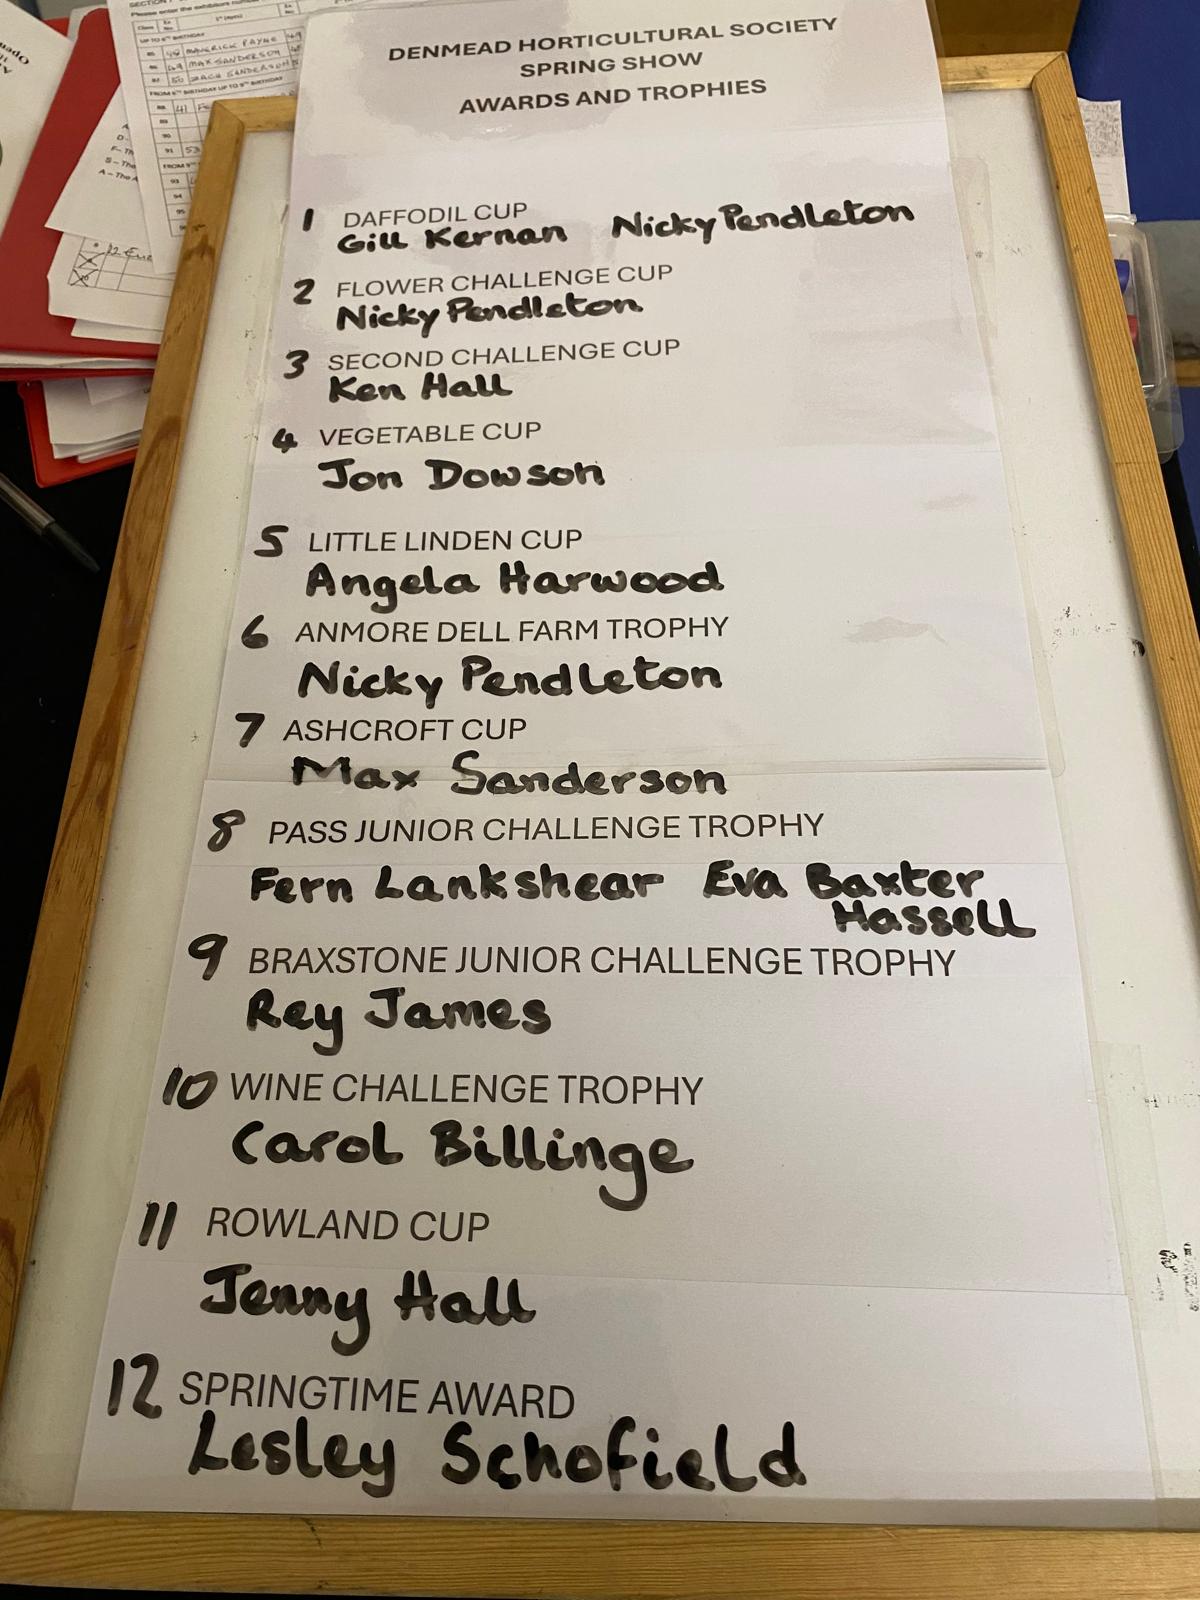 DENMEAD HORTICULTURAL SOCIETY
SPRING SHOW
AWARDS AND TROPHIES
1 DAFFODIL CUP
Gill Kernan Nicky Pendleton
2 FLOWER CHALLENGE CUP
Nicky Pendleton
3 SECOND CHALLENGE CUP
Ken Hall
4 VEGETABLE CUP
Jon Dowson
5 LITTLE LINDEN CUP
Angela Harwood
6 ANMORE DELL FARM TROPHY
Nicky Pendleton
7 ASHCROFT CUP
Max Sanderson
8 PASS JUNIOR CHALLENGE TROPHY
Fern Lankshear Eva Baxter
Hassell
9 BRAXSTONE JUNIOR CHALLENGE TROPHY
Rey James
10 WINE CHALLENGE TROPHY
Carol Billinge
11 ROWLAND CUP
Jenny Hall
12 SPRINGTIME AWARD
Lesley Schofield
UP TO 5TH BIRTHDAY
MAVERICK PAYNE
MAX SANDERSON
SANDERSON